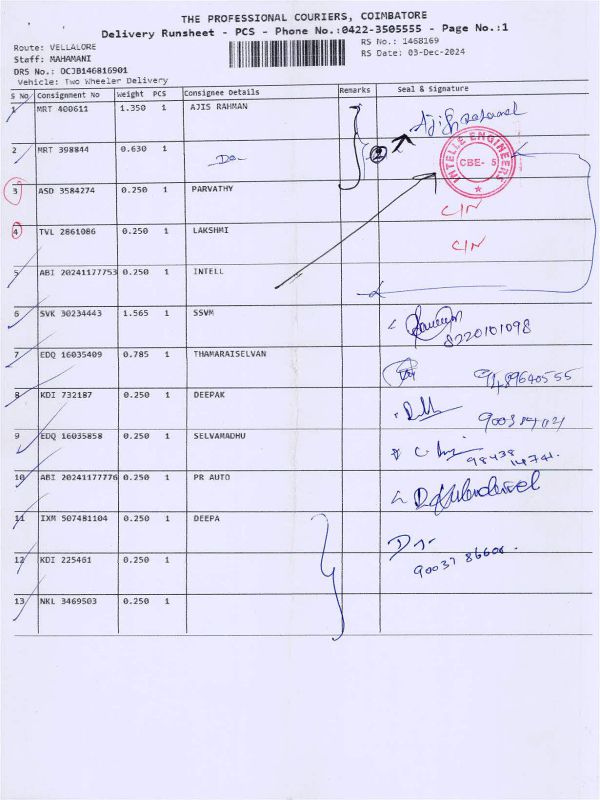 THE PROFESSIONAL COURIERS, COIMBATORE
Delivery Runsheet - PCS - Phone No.:0422-3505555 - Page No.:1
Route: VELLALORE
RS No.: 1468169
Staff: MAHAMANI
RS Date: 03-Dec-2024
DRS No.: OCJB146816901
Vehicle: Two Wheeler Delivery
S No Consignment No Weight PCS Consignee Details Remarks Seal & Signature
1 MRT 400611 1.350 1 AJIS RAHMAN
2 MRT 398844 0.630 1 -Do- 2
INTELLE ENGINEERS
CBE- 5
3 ASD 3584274 0.250 1 PARVATHY C/N
4 TVL 2861086 0.250 1 LAKSHMI C/N
5 ABI 20241177753 0.250 1 INTELL
6 SVK 30234443 1.565 1 SSVM 8220101098
7 EDQ 16035409 0.785 1 THAMARAISELVAN
8 KDI 732187 0.250 1 DEEPAK
9 EDQ 16035858 0.250 1 SELVAMADHU 98438 14741.
10 ABI 20241177776 0.250 1 PR AUTO
11 IXM 507481104 0.250 1 DEEPA
12 KDI 225461 0.250 1 90037 86606.
13 NKL 3469503 0.250 1